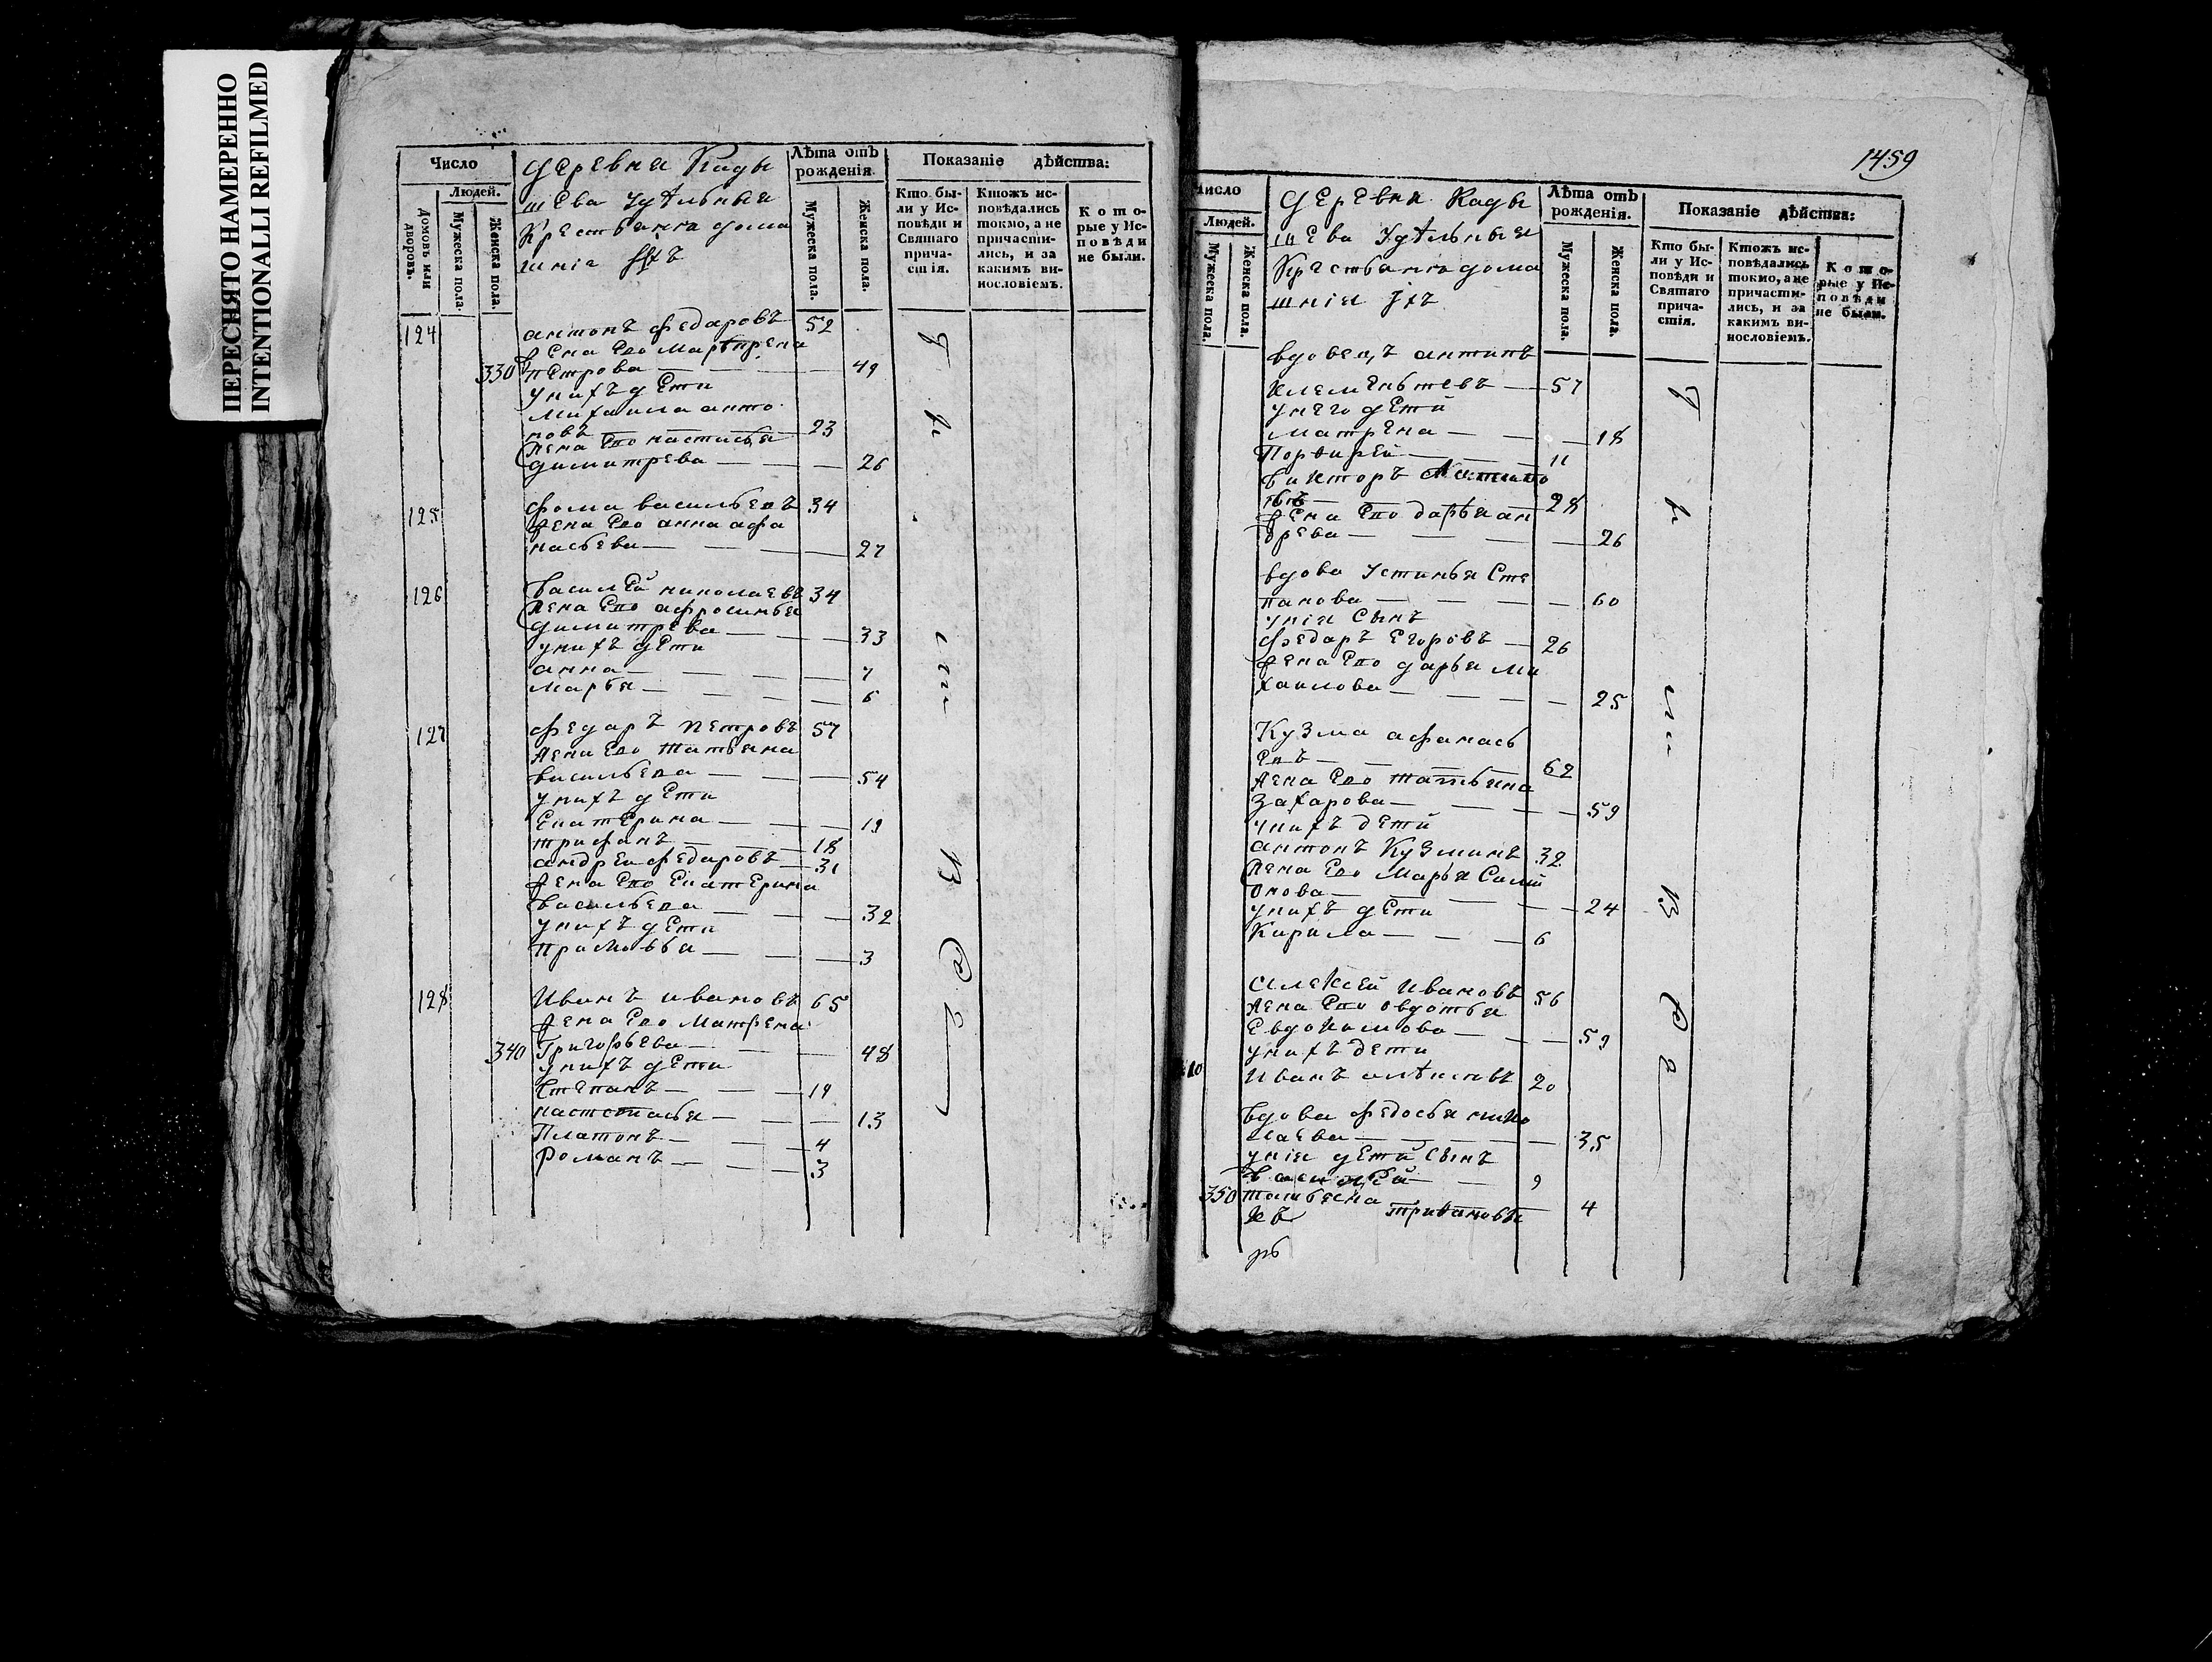 ПЕРЕСНЯТО НАМЕРЕННО
INTENTIONALLI REFILMED
Число
Людей.
Домовъ или дворовъ.
Мужеска пола.
Женска пола.
деревня Кады
шева Удѣльныя
Крестьяна дома
шніе
Лѣта отъ
рожденія.
Мужеска пола.
Женска пола.
Показаніе дѣйства:
Кто бы-
ли у Ис-
повѣди и
Святаго
прича-
стія.
Ктожъ ис-
повѣдались
токмо, а не
причасти-
лись, и за
какимъ ви-
нословіемъ.
Кото-
рые у Ис-
повѣди
не были.
124 антонъ федаровъ 52
жена Его
330 петрова 49
унихъ дети
михаила анто
новъ 23
жена Его настасья
димитрева 26
125 фома васильевъ 34
жена Его анна афа
насьева 27
126 василей николаевъ 34
жена Его афросинья
димитрева 33
унихъ дети
анна 7
марья 6
127 федаръ петровъ 57
жена Его татьяна
васильева 54
унихъ дети
Екатерина 19
трифанъ 18
андреи федаровъ 31
жена Его Екатерина
васильева 32
унихъ дети
3
128 Иванъ ивановъ 65
жена Его матрена
340 Григорьева 48
унихъ дети
степанъ 19
настасья 13
Платонъ 4
Романъ 3
были
1459
Число
Людей.
Мужеска пола.
Женска пола.
деревня Кады
шева Удѣльныя
Крестьяна дома
шнія ихъ
Лѣта отъ
рожденія.
Мужеска пола.
Женска пола.
Показаніе дѣйства:
Кто бы-
ли у Ис-
повѣди и
Святаго
прича-
стія.
Ктожъ ис-
повѣдались
токмо, а не
причасти-
лись, и за
какимъ ви-
нословіемъ.
Кото-
рые у Ис-
повѣди
не были.
вдовецъ антипъ
57
унего дети
матрена 18
Порфирей 11
викторъ
28
жена Его дарья ан
древа 26
вдова устинья Сте
панова 60
унія сынъ
федаръ Егоровъ 26
жена Его дарья ми
хаилова 25
Кузма афанась
евъ 62
жена Его татьяна
Захарова 59
унихъ дети
антонъ Кузминъ 32
жена Его марья Сами
онова 24
унихъ дети
Кирила 6
алексей Ивановъ 56
жена Его овдотья
Евдокимова 59
унихъ дети
Иванъ 20
вдова федосья нико
лаева 35
унія дети сынъ
василей 9
350 татьяна 4